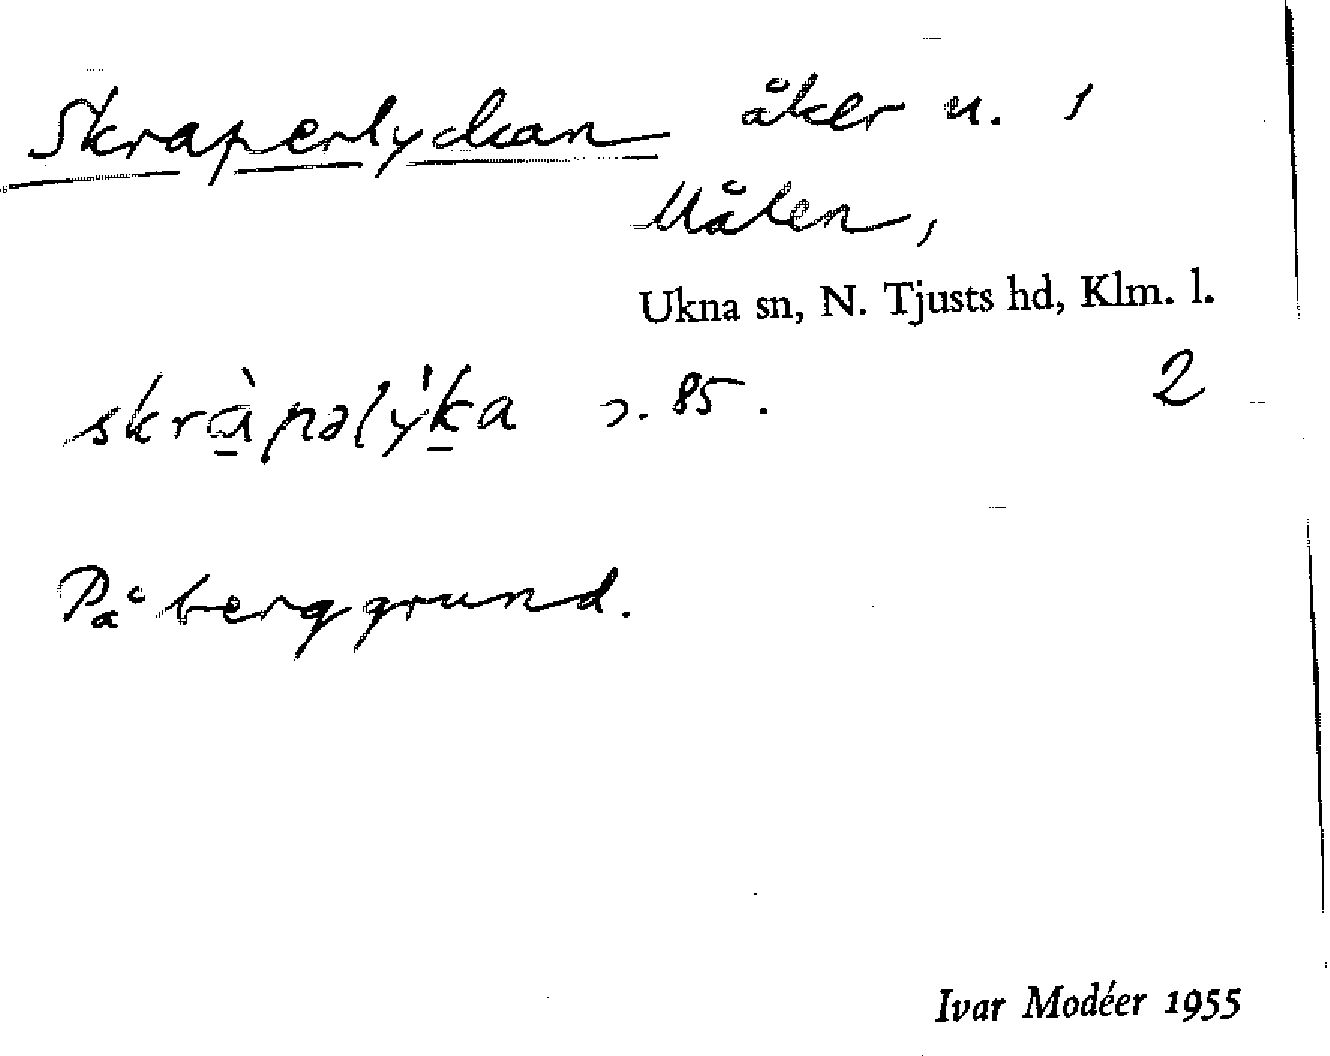 Skraperlyckan åker u. 1
Målen,
Ukna sn, N. Tjusts hd, Klm. l.
skràpəlýka ɔ. 85. 2
På berggrund.
Ivar Modéer 1955